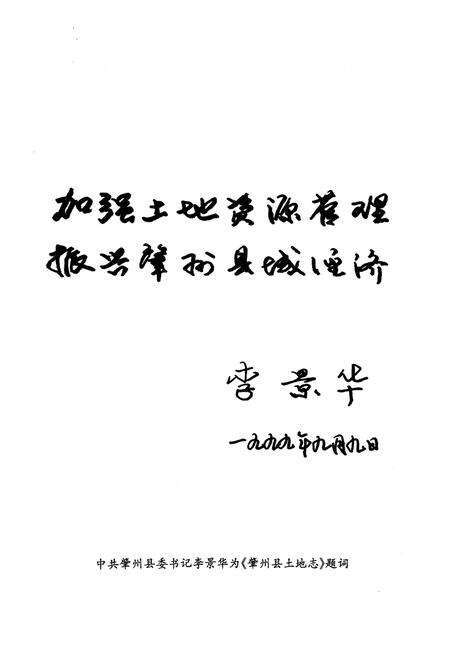 加强土地资源管理
振兴肇州县域经济
李景华
一九九九年九月九日
中共肇州县委书记李景华为《肇州县土地志》题词